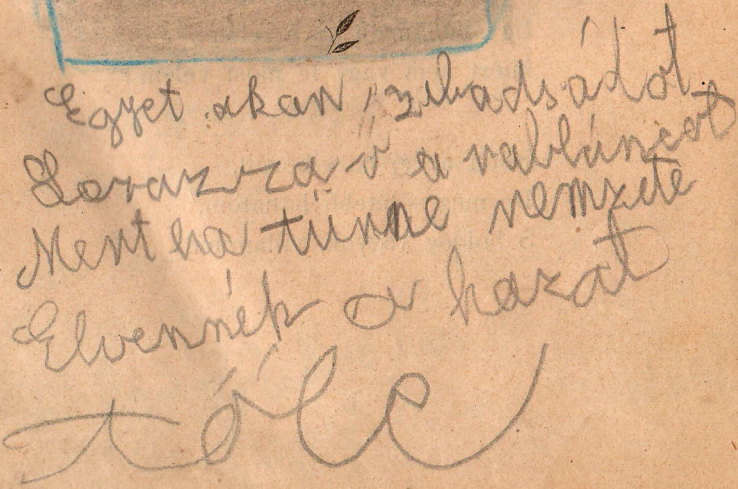 Egyet akar, zabadságot
Lerázza ő a rabláncot
Mert ha tűrne nemzete
Elvennék a hazát
tőle